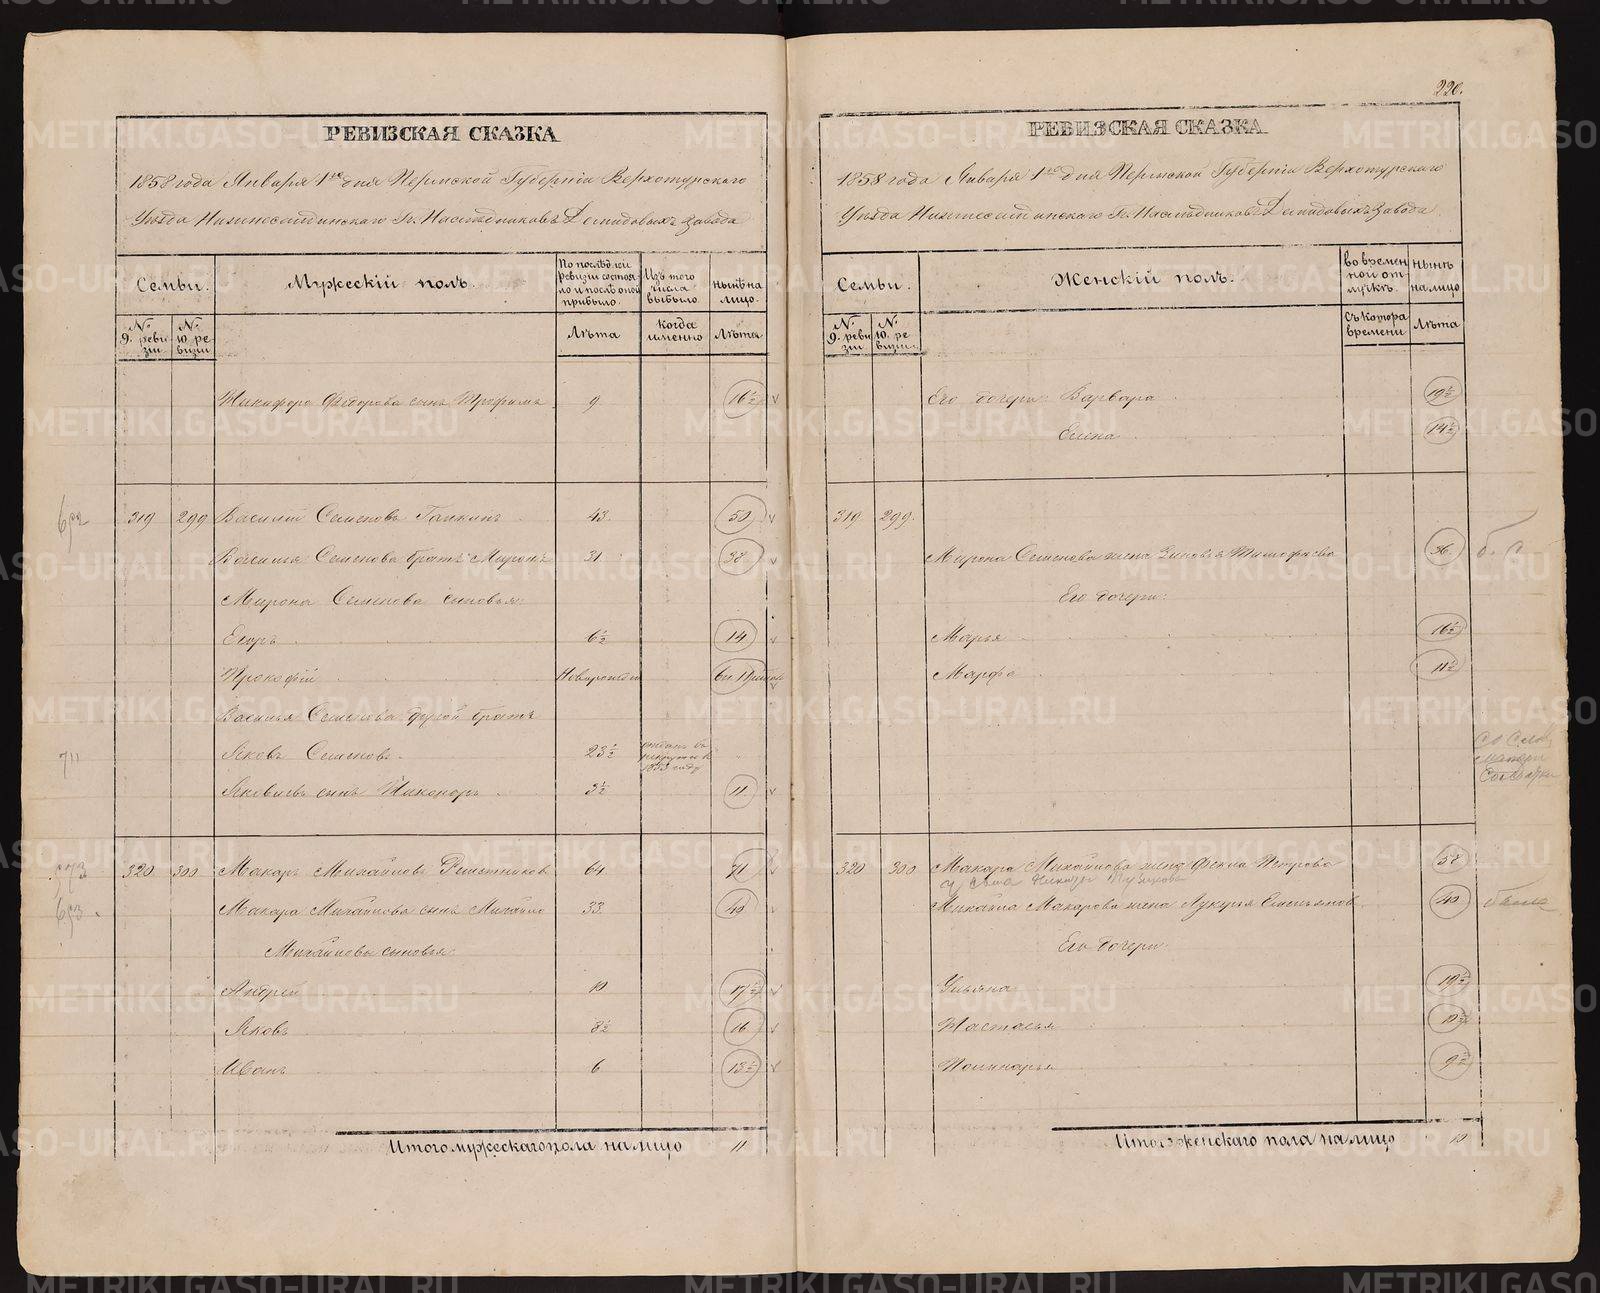 220.
РЕВИЗСКАЯ СКАЗКА
1858 года Января 1го дня Пермской Губернiи Верхотурскаго
Уѣзда Нижнесалдинскаго Гг. Наслѣдниковъ Демидовыхъ Завода
Семьи.
Мужескiй полъ.
По послѣдней ревизiи состояло и послѣ оной прибыло.
Изъ того числа выбыло
нынѣ на лицо.
№ 9. ревизiи
№ 10. ревизiи
Лѣта
когда именно
Лѣта
Никифора Федорова сынъ Трофимъ 9 16½
652 319 299 Василiй Семеновъ Галкинъ 43. 50
Василья Семенова братъ Миронъ 31. 38
Мирона Семенова сыновья:
Егоръ 6½ 14
Прокофiй Новорожден
Василья Семенова другой братъ
711 Яковъ Семеновъ 23½ отданъ въ рекруты въ 1853 году
Яковлевъ сынъ Никоноръ 3½ 11
573 320 300 Макаръ Михайловъ Решетниковъ 64 71
653. Макара Михайлова сынъ Михайло 33. 40
Михайловы сыновья:
Андрей 10 17½
Яковъ 8½ 16
Иванъ 6 13½
Итого мужескаго пола на лицо 11
РЕВИЗСКАЯ СКАЗКА
1858 года Января 1го дня Пермской Губернiи Верхотурскаго
Уѣзда Нижнесалдинскаго Гг. Наслѣдниковъ Демидовыхъ Завода
Семьи.
Женскiй полъ.
во временной отлучкѣ.
нынѣ на лицо
№ 9. ревизiи
№ 10. ревизiи
Съ котора времени
Лѣта
Его дочери: Варвара 19½
Елена 14½
319 299.
Мирона Семенова жена Зиновья Тимофѣева 36.
Его дочери:
Марья 16½
Марфа 11½
320 300 Макара Михайлова жена Фекла Петрова 58
Михайла Макарова жена Лукерья Емельянова 40
Его дочери:
Ульяна 19½
Настасья 12½
Полинарья 9½
Итого женскаго пола на лицо 10
METRIKI.GASO-URAL.RU